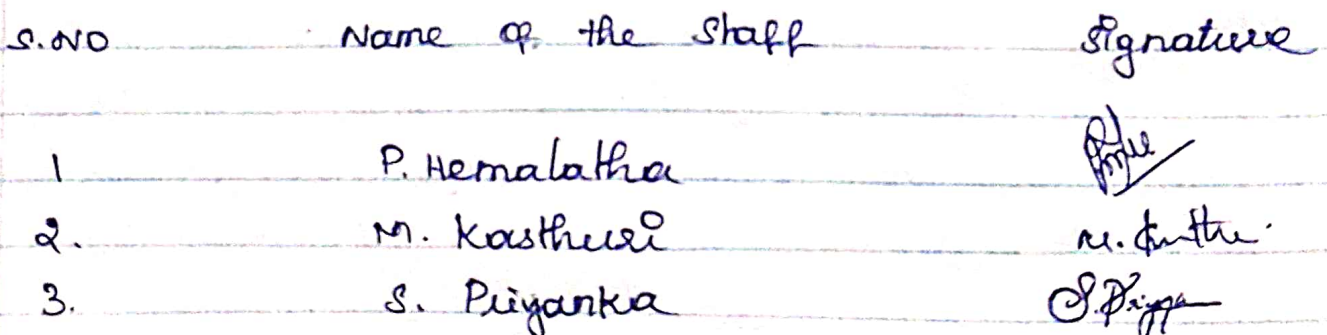 S.NO Name of the Staff Signature
1 P. Hemalatha
2. M. Kasthuri M.
3. S. Priyanka S.